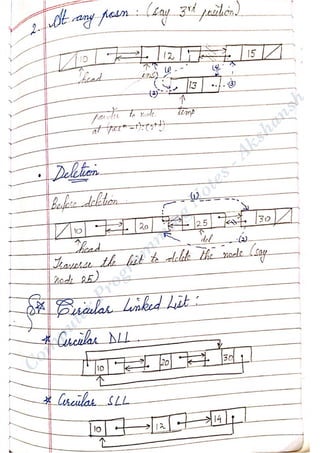 2. At any posn : (say 3rd position)
10 12 15
head
(4) (1)
(2) 13 (3)
pointer to node temp
at
• Deletion
Before deletion
(1)
10 20 25 30
head del (2)
Traverse the list to delete the node (say
node 25)
* Circular Linked List :
* Circular DLL
10 20 30
* Circular SLL
10 12 14
Notes - Akshansh